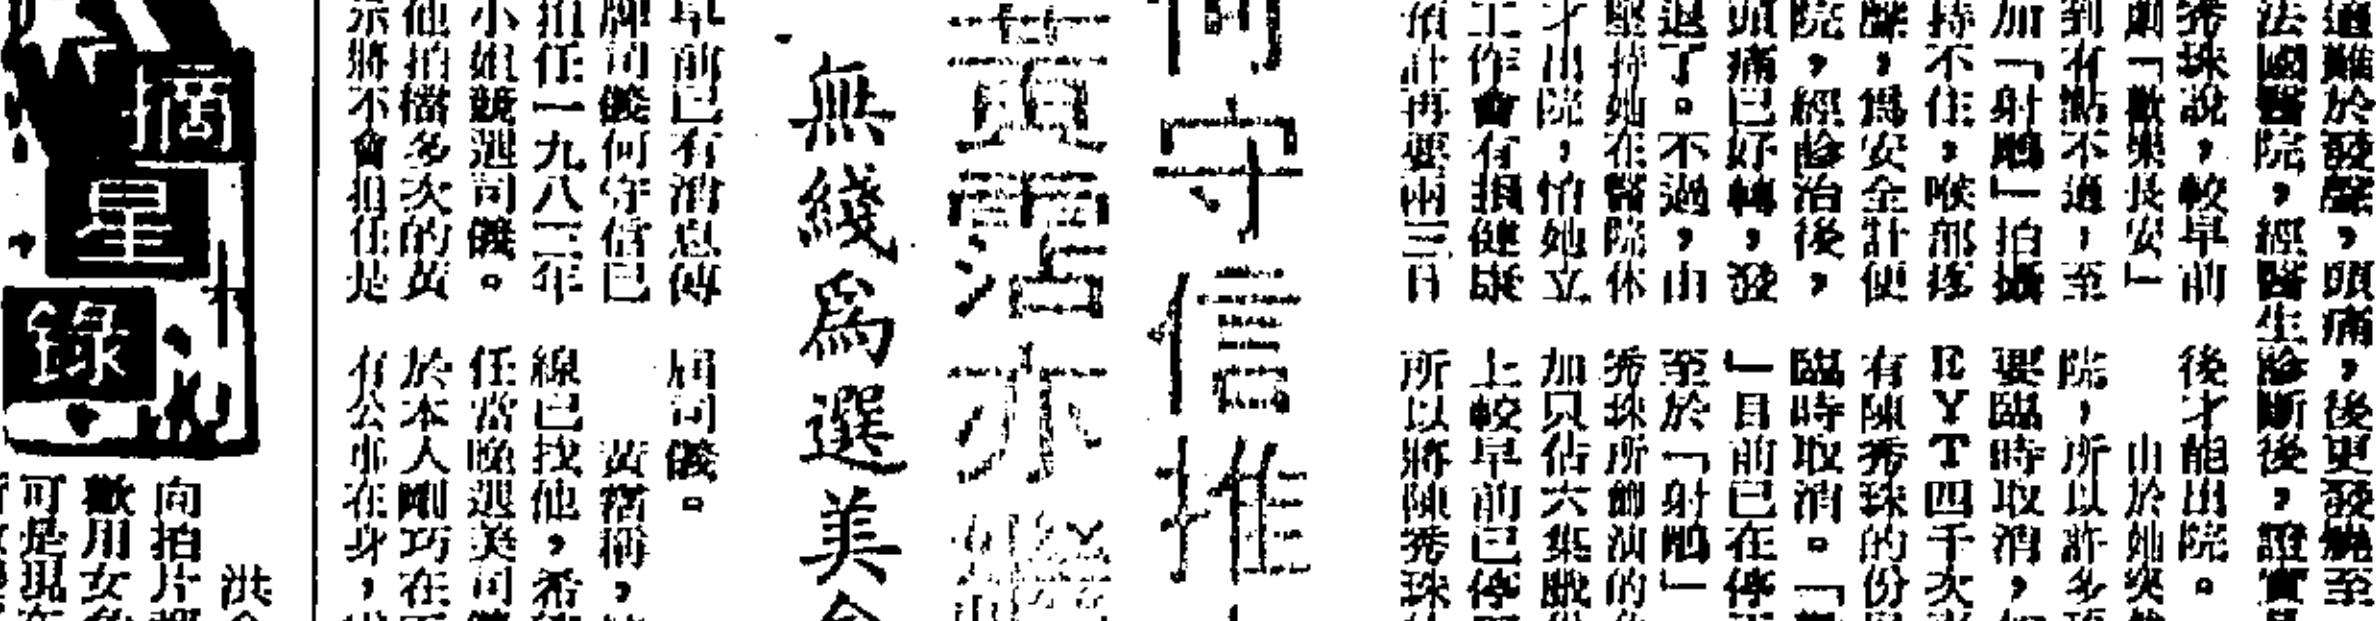 適難於發聲，頭痛，後更發燒至
法國醫院，經醫生診斷後，證實是
秀珠說，較早前
劇「歡樂長安」
到有點不適，至
加「射鵰」拍攝
持不住，喉部疼
聲，爲安全計便
院，經診治後，
頭痛已好轉，發
退了。不過，由
堅持她在醫院休
才出院，怕她立
工作會有損健康
預計再要兩三日
後才能出院。
由於她突然
院，所以許多
要臨時取消，
EYT四千次
有陳秀珠的份
臨時取消。「
」目前已在停
至於「射鵰」
秀珠所飾演的
加只佔六集戲
上較早前已停
所以將陳秀珠
何守信推
黃霑亦
無綫爲選美會
早前已有消息傳
牌司儀何守信已
担任一九八三年
小姐競選司儀。
他拍檔多次的黃
示將不會担任是
屆司儀。
黃霑稱，
線已找他，希
任當晚選美司儀
於本人剛巧在
有公事在身，
摘星錄
洪
向拍片
歡用女
可是現在